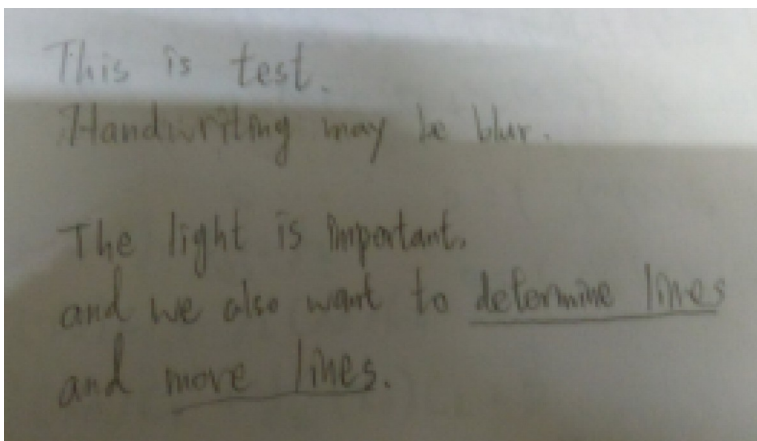 This is test.
Handwriting may be blur.
The light is important.
and we also want to determine lines
and more lines.